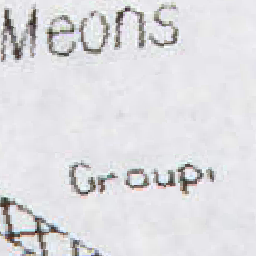 Meons
Group,